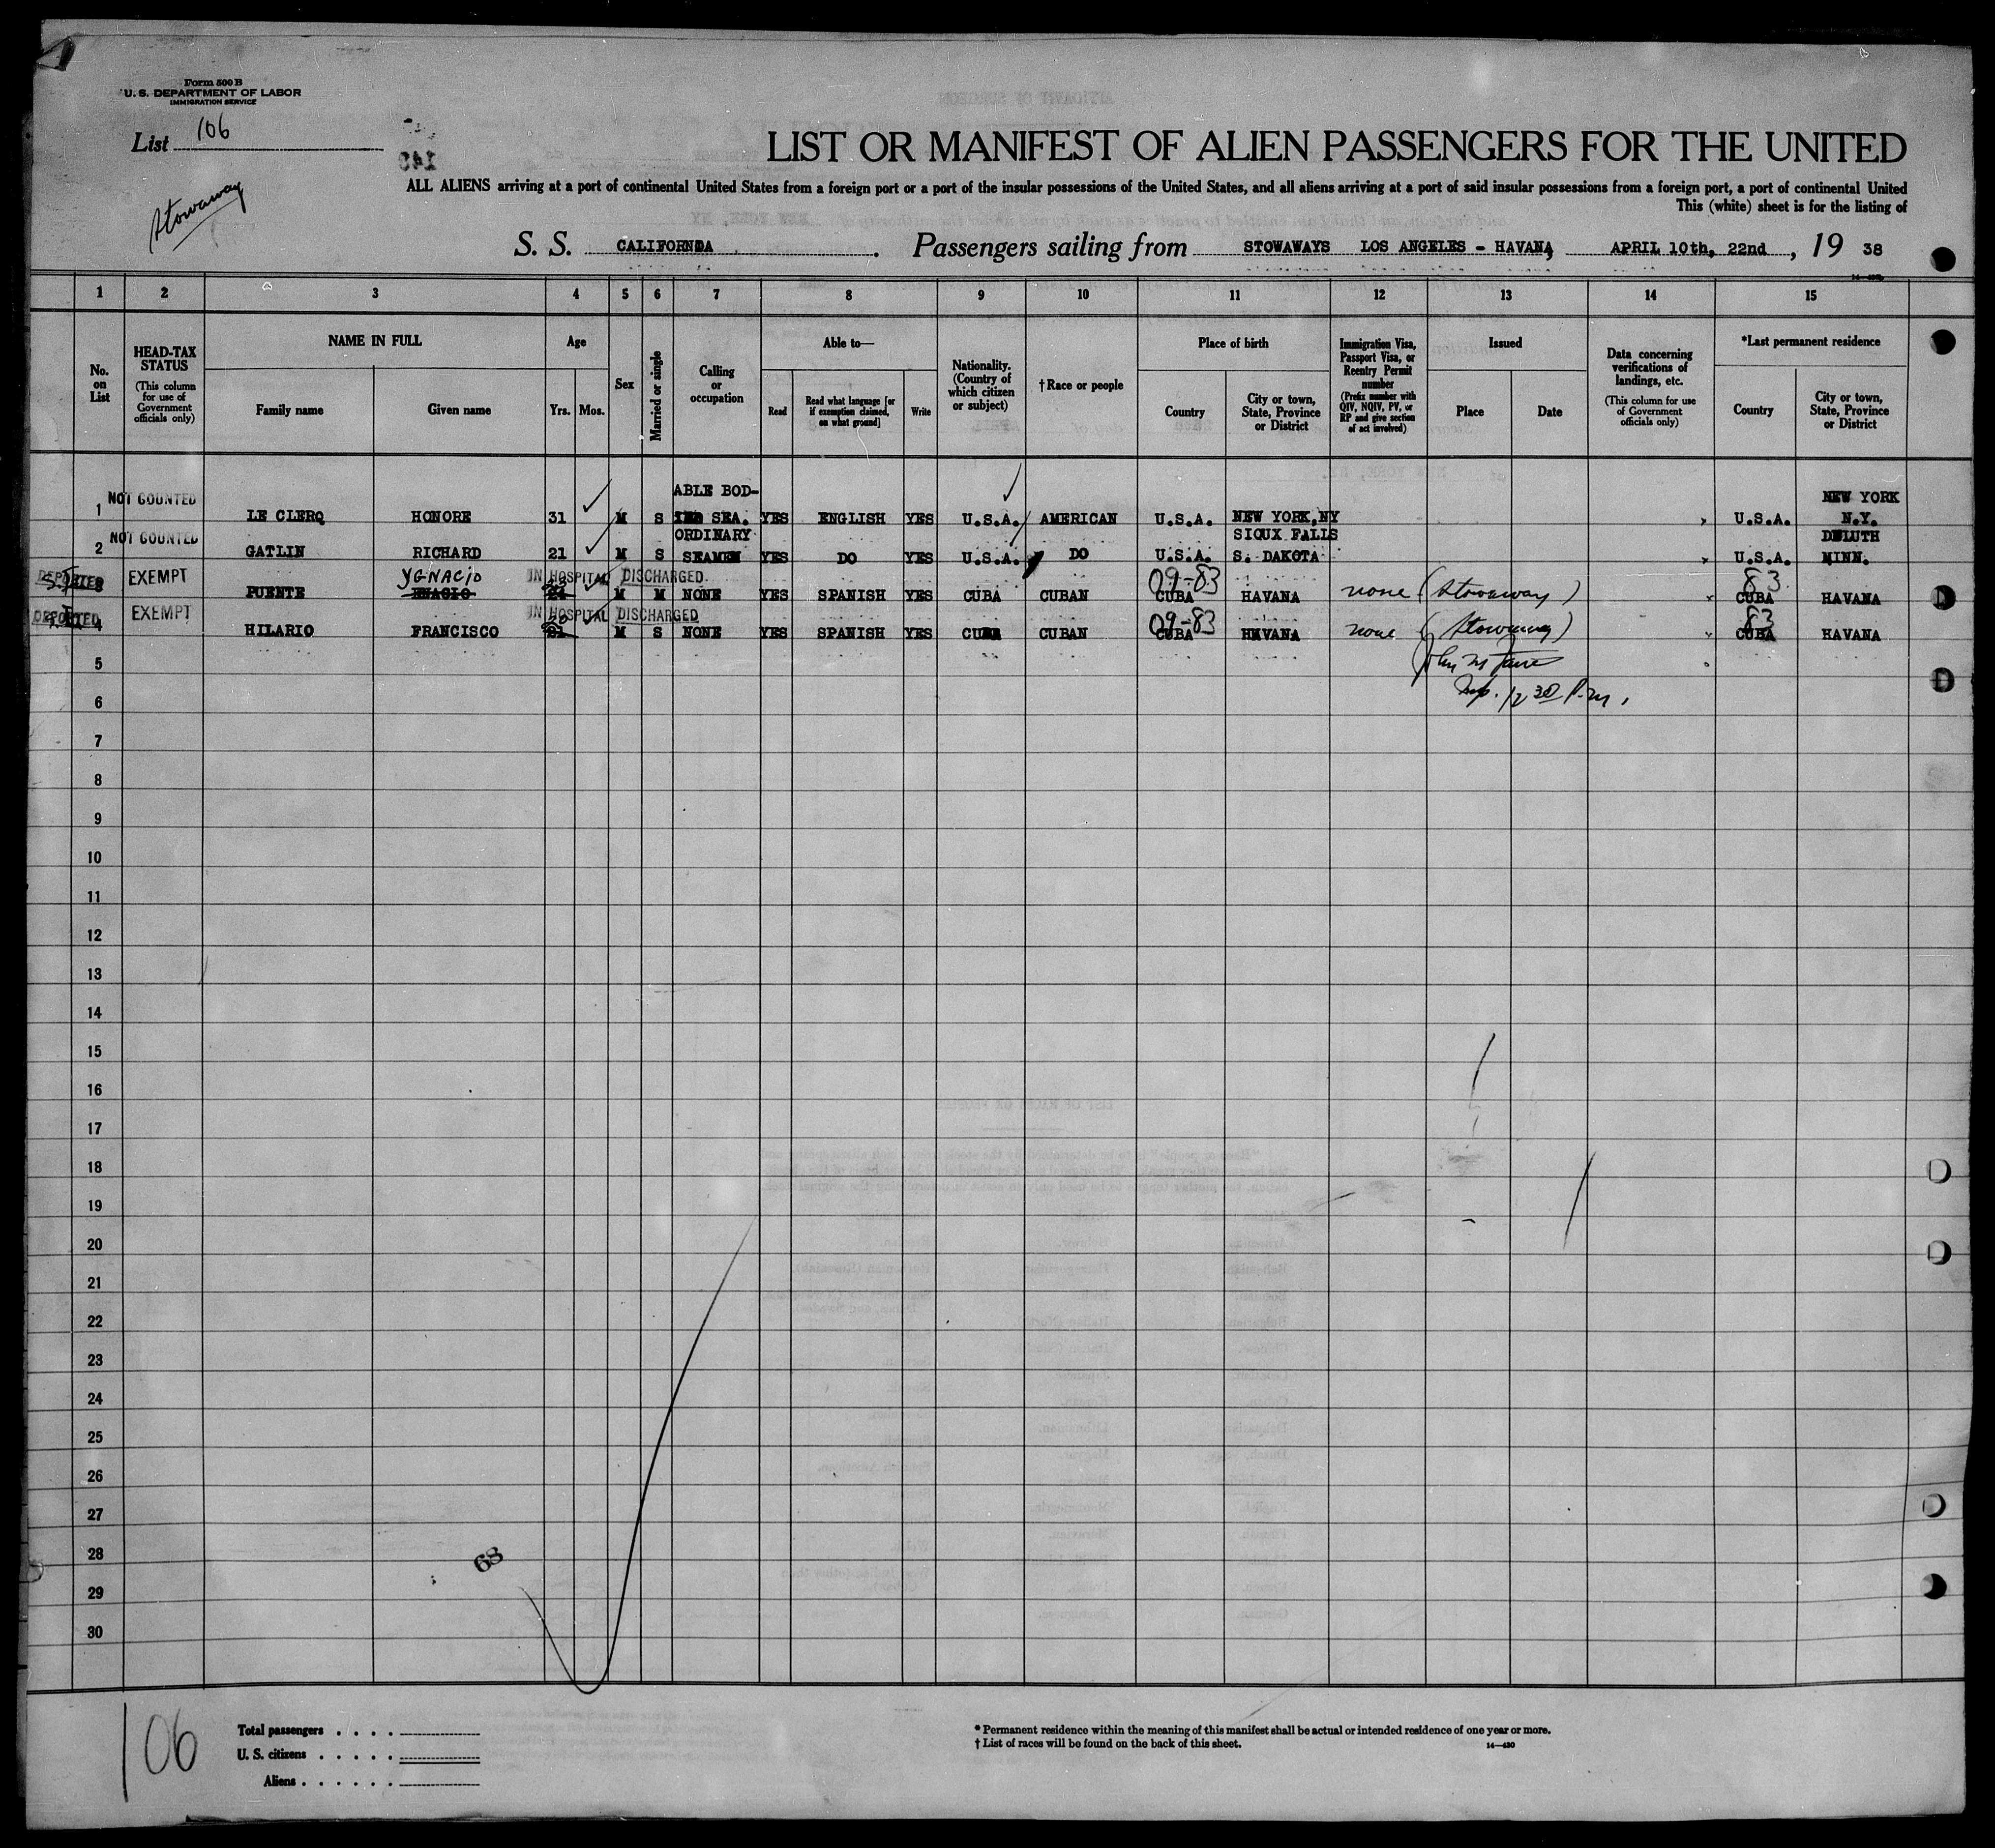 Form 500 B
U. S. DEPARTMENT OF LABOR
IMMIGRATION SERVICE
List 106
Stowaway
LIST OR MANIFEST OF ALIEN PASSENGERS FOR THE UNITED
ALL ALIENS arriving at a port of continental United States from a foreign port or a port of the insular possessions of the United States, and all aliens arriving at a port of said insular possessions from a foreign port, a port of continental United
This (white) sheet is for the listing of
S. S. CALIFORNIA . Passengers sailing from STOWAWAYS LOS ANGELES - HAVANA, APRIL 10th, 22nd , 19 38
1 2 3 4 5 6 7 8 9 10 11 12 13 14 15
No. on List
HEAD-TAX STATUS
(This column for use of Government officials only)
NAME IN FULL
Family name
Given name
Age
Yrs.
Mos.
Sex
Married or single
Calling or occupation
Able to—
Read
Read what language [or if exemption claimed, on what ground]
Write
Nationality. (Country of which citizen or subject)
† Race or people
Place of birth
Country
City or town, State, Province or District
Immigration Visa, Passport Visa, or Reentry Permit number
(Prefix number with QIV, NQIV, PV, or RP and give section of act involved)
Issued
Place
Date
Data concerning verifications of landings, etc.
(This column for use of Government officials only)
*Last permanent residence
Country
City or town, State, Province or District
1 NOT COUNTED LE CLERQ HONORE 31 M S ABLE BOD- IED SEA. YES ENGLISH YES U.S.A. AMERICAN U.S.A. NEW YORK,NY U.S.A. NEW YORK N.Y.
2 NOT COUNTED GATLIN RICHARD 21 M S ORDINARY SEAMEN YES DO YES U.S.A. DO U.S.A. SIOUX FALLS S. DAKOTA U.S.A. DULUTH MINN.
DEPORTED 3 EXEMPT PUENTE YGNACIO IN HOSPITAL DISCHARGED M M NONE YES SPANISH YES CUBA CUBAN 09-83 CUBA HAVANA none (Stowaway) 83 CUBA HAVANA
DEPORTED 4 EXEMPT HILARIO FRANCISCO IN HOSPITAL DISCHARGED M S NONE YES SPANISH YES CUBA CUBAN 09-83 CUBA HAVANA none (Stowaway) 83 CUBA HAVANA
5
Insp. 12 30 P.M.
6
7
8
9
10
11
12
13
14
15
16
17
18
19
20
21
22
23
24
25
26
27
28
68
29
30
106
Total passengers . . . .
U. S. citizens . . . . .
Aliens . . . . . .
* Permanent residence within the meaning of this manifest shall be actual or intended residence of one year or more.
† List of races will be found on the back of this sheet.
14—430